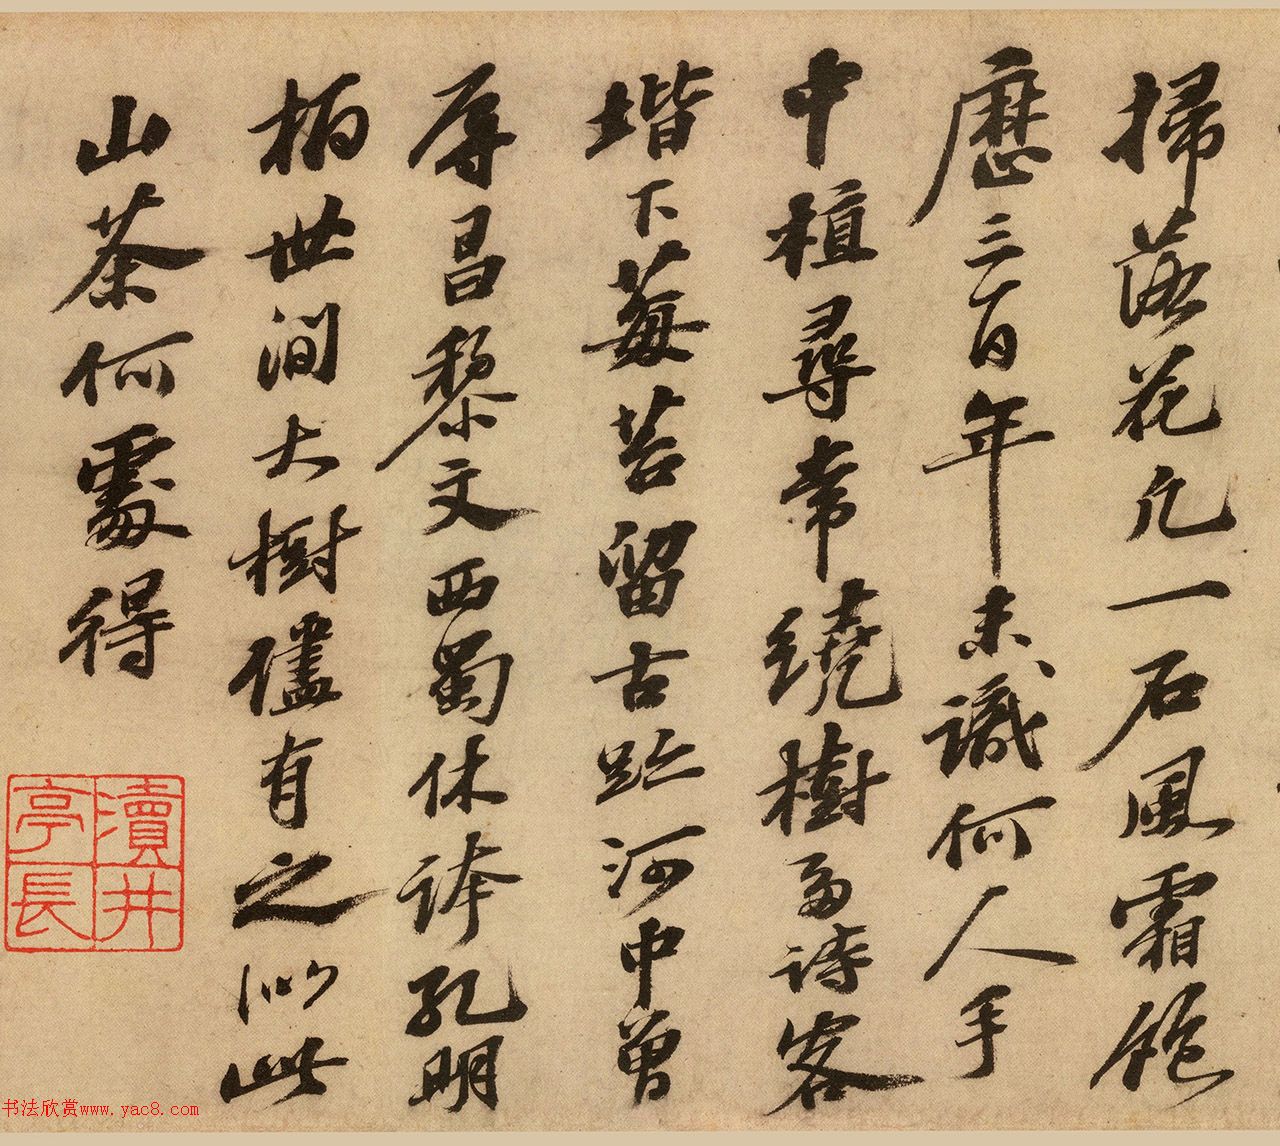 掃落花凣一石風霜飽
歷三百年未識何人手
中植尋常繞樹多詩客
堦下莓苔留古跡河中曾
辱昌黎文西蜀休誇孔明
栢世澗大樹儘有之似此
山茶何處得
瀆井
亭長
书法欣赏www.yac8.com